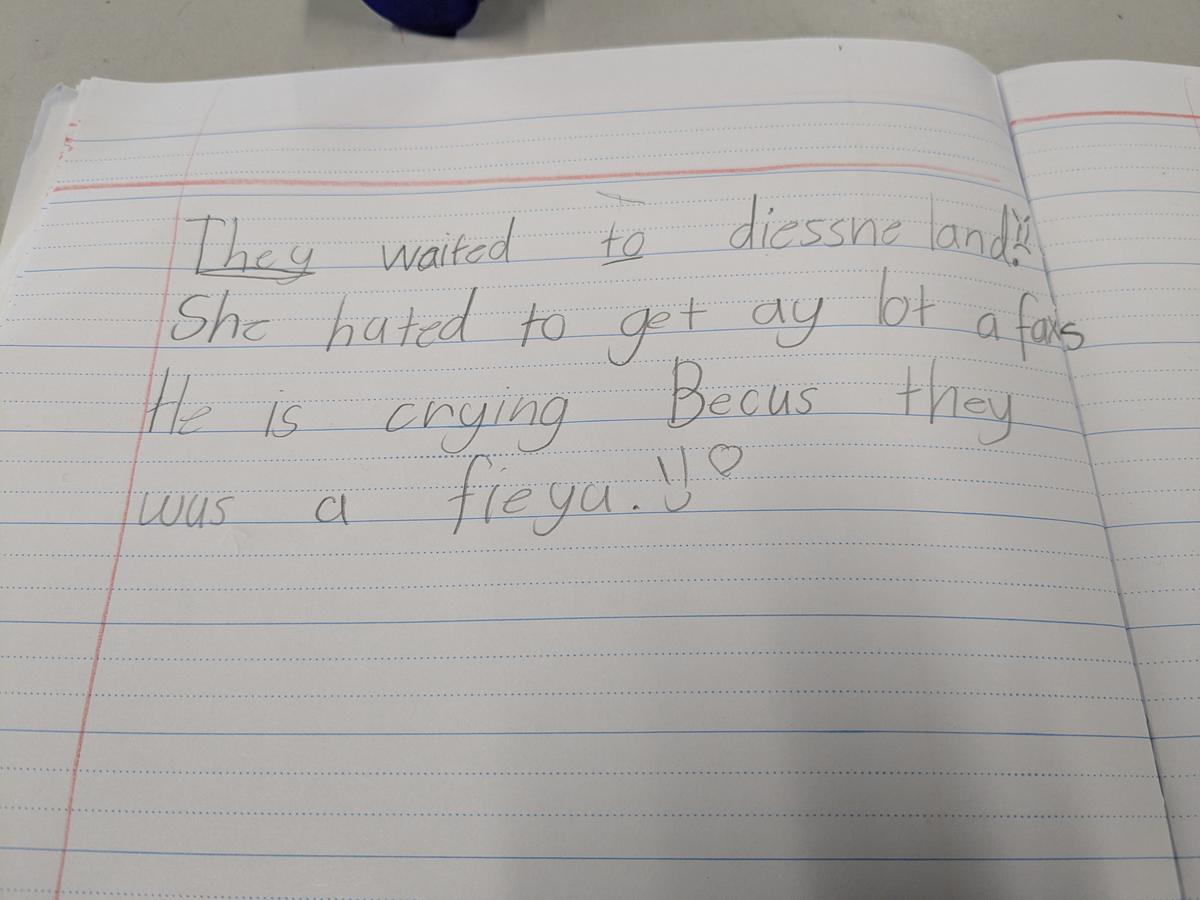 They waited to diessne land!!
She hated to get ay lot a faxs
He is crying Becus they
was a fieya.